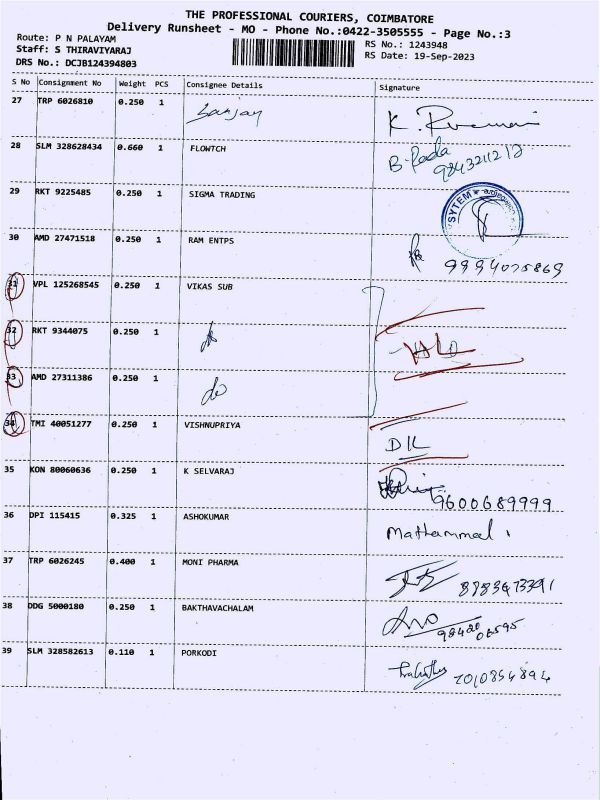 THE PROFESSIONAL COURIERS, COIMBATORE
Delivery Runsheet - MO - Phone No.:0422-3505555 - Page No.:3
Route: P N PALAYAM
Staff: S THIRAVIYARAJ
DRS No.: DCJB124394803
RS No.: 1243948
RS Date: 19-Sep-2023
S No Consignment No Weight PCS Consignee Details Signature
27 TRP 6026810 0.250 1 Sanjay
28 SLM 328628434 0.660 1 FLOWTCH B. Rada
9843211212
29 RKT 9225485 0.250 1 SIGMA TRADING SYTEM
30 AMD 27471518 0.250 1 RAM ENTPS
9994075869
31 VPL 125268545 0.250 1 VIKAS SUB
32 RKT 9344075 0.250 1 do
33 AMD 27311386 0.250 1 do
34 TMI 40051277 0.250 1 VISHNUPRIYA
DK
35 KON 80060636 0.250 1 K SELVARAJ
9600689999
36 DPI 115415 0.325 1 ASHOKUMAR Mathammal
37 TRP 6026245 0.400 1 MONI PHARMA
38 DDG 5000180 0.250 1 BAKTHAVACHALAM
39 SLM 328582613 0.110 1 PORKODI